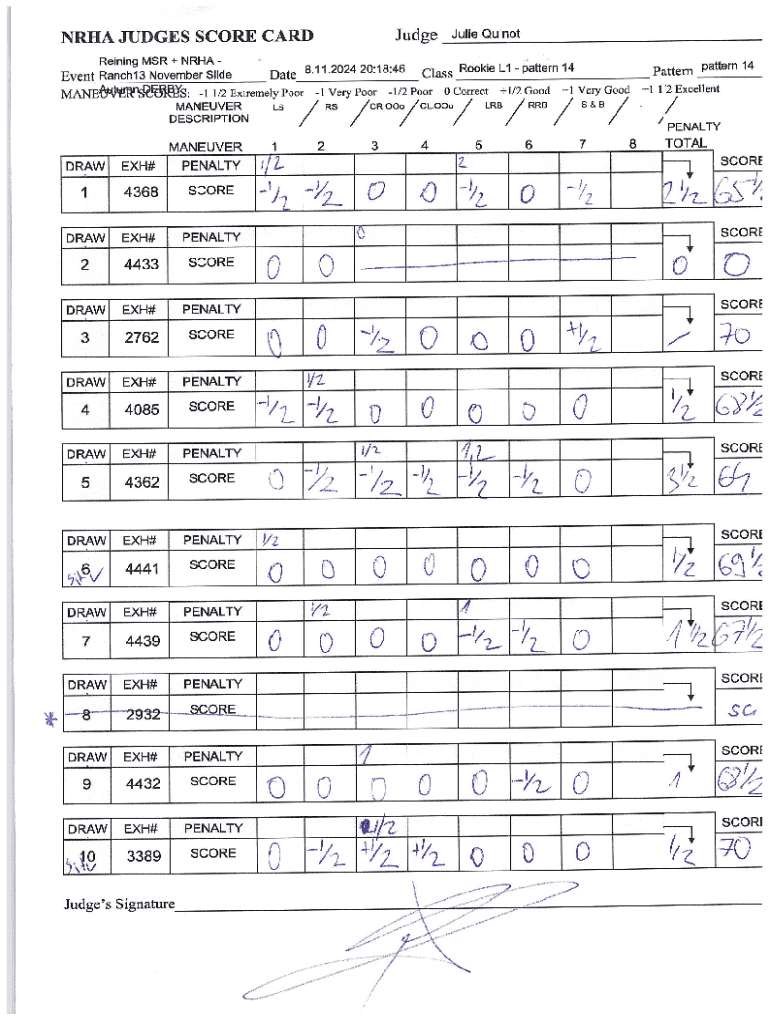 NRHA JUDGES SCORE CARD Judge Julie Quinot
Reining MSR + NRHA -
Event Ranch13 November Slide Date 8.11.2024 20:18:46 Class Rookie L1 - pattern 14 Pattern pattern 14
Autumn DERBY
MANEUVER SCORES: -1 1/2 Extremely Poor -1 Very Poor -1/2 Poor 0 Correct +1/2 Good +1 Very Good +1 1/2 Excellent
MANEUVER DESCRIPTION LS / RS / CR OOo / CL OOu / LRB / RRB / S & B / . /
PENALTY
MANEUVER 1 2 3 4 5 6 7 8 TOTAL
DRAW EXH# PENALTY 1/2 2 SCORE
1 4368 SCORE -1/2 -1/2 0 0 -1/2 0 -1/2 2 1/2 65 1/2
DRAW EXH# PENALTY 0 SCORE
2 4433 SCORE 0 0 0 0
DRAW EXH# PENALTY SCORE
3 2762 SCORE 0 0 -1/2 0 0 0 +1/2 / 70
DRAW EXH# PENALTY 1/2 SCORE
4 4085 SCORE -1/2 -1/2 0 0 0 0 0 1/2 68 1/2
DRAW EXH# PENALTY 1/2 1,2 SCORE
5 4362 SCORE 0 -1/2 -1/2 -1/2 -1/2 -1/2 0 3 1/2 64
DRAW EXH# PENALTY 1/2 SCORE
6 4441 SCORE 0 0 0 0 0 0 0 1/2 69 1/2
DRAW EXH# PENALTY 1/2 1 SCORE
7 4439 SCORE 0 0 0 0 -1/2 -1/2 0 1 1/2 67 1/2
DRAW EXH# PENALTY SCORE
* 8 2932 SCORE sc
DRAW EXH# PENALTY 1 SCORE
9 4432 SCORE 0 0 0 0 0 -1/2 0 1 68 1/2
DRAW EXH# PENALTY 1/2 SCORE
10 3389 SCORE 0 -1/2 +1/2 +1/2 0 0 0 1/2 70
Judge's Signature